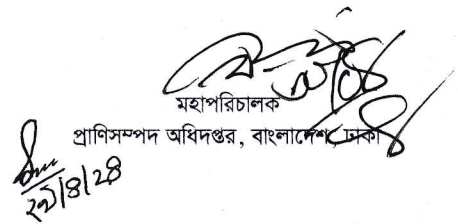 মহাপরিচালক
প্রাণিসম্পদ অধিদপ্তর, বাংলাদেশ, ঢাকা
২৯/৪/২৪